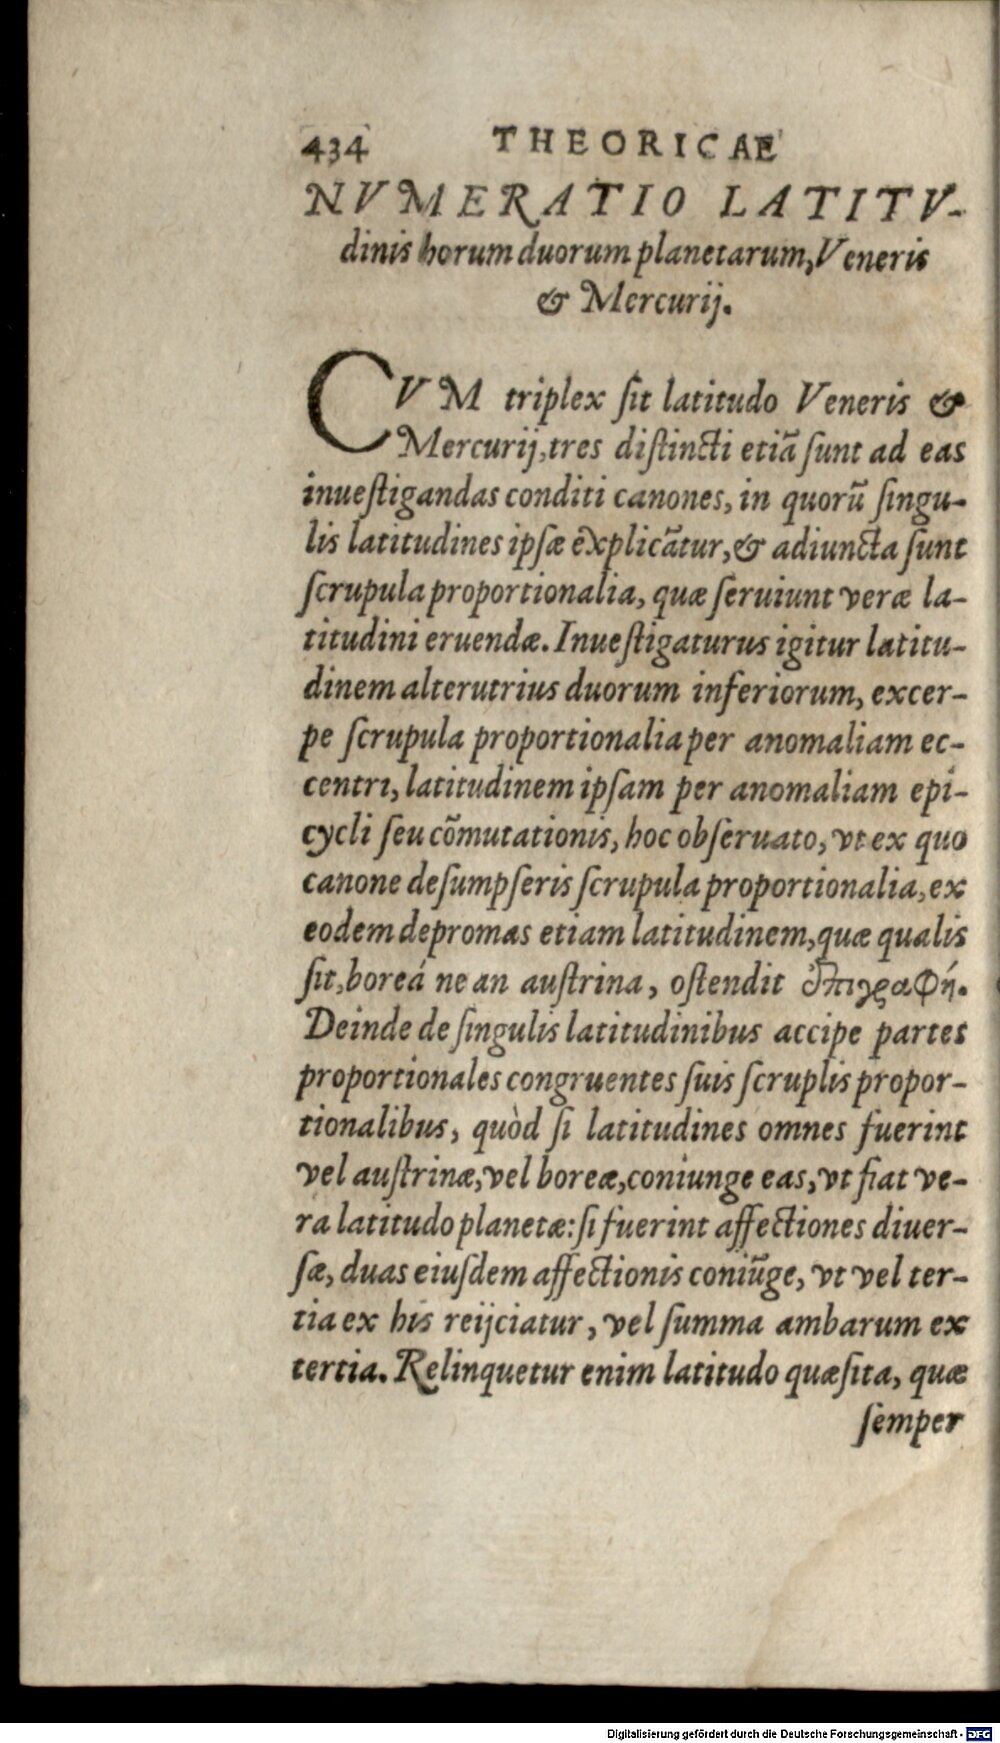 434 THEORICAE
NVMERATIO LATITV-
dinis horum duorum planetarum, Veneris
& Mercurij.
CVM triplex ſit latitudo Veneris &
Mercurij, tres diſtincti etiã ſunt ad eas
inueſtigandas conditi canones, in quorũ ſingu-
lis latitudines ipſæ explicãtur, & adiuncta ſunt
ſcrupula proportionalia, quæ ſeruiunt veræ la-
titudini eruendæ. Inueſtigaturus igitur latitu-
dinem alterutrius duorum inferiorum, excer-
pe ſcrupula proportionalia per anomaliam ec-
centri, latitudinem ipſam per anomaliam epi-
cycli ſeu cõmutationis, hoc obſeruato, vt ex quo
canone deſumpſeris ſcrupula proportionalia, ex
eodem depromas etiam latitudinem, quæ qualis
ſit, boreá ne an auſtrina, oſtendit ἐπιγραφή.
Deinde de ſingulis latitudinibus accipe partes
proportionales congruentes ſuis ſcruplis propor-
tionalibus, quòd ſi latitudines omnes fuerint
vel auſtrinæ, vel boreæ, coniunge eas, vt fiat ve-
ra latitudo planetæ: ſi fuerint affectiones diuer-
ſæ, duas eiuſdem affectionis coniũge, vt vel ter-
tia ex his reijciatur, vel ſumma ambarum ex
tertia. Relinquetur enim latitudo quæſita, quæ
ſemper
Digitalisierung gefördert durch die Deutsche Forschungsgemeinschaft - DFG